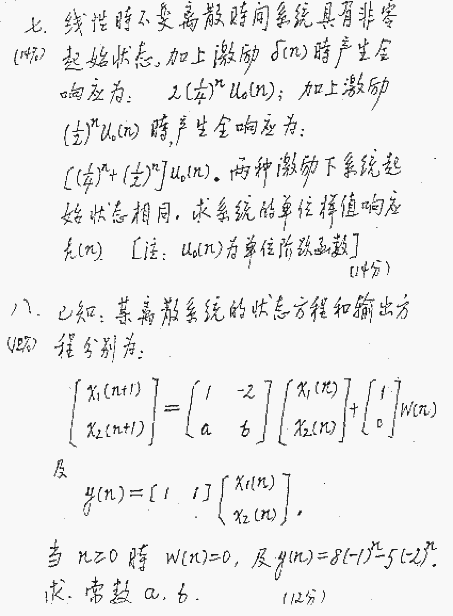 七、線性時不变离散時间系统具有非零
(14%) 起始状态,加上激励 δ(n) 時产生全
响应为: 2(1/4)ⁿ u₀(n); 加上激励
(1/2)ⁿ u₀(n) 時,产生全响应为:
[(1/4)ⁿ+(1/2)ⁿ]u₀(n)。两种激励下系统起
始状态相同。求系统的单位样值响应
h(n). [注: u₀(n)为单位阶跃函数]
(14分)
八、已知:某离散系统的状态方程和输出方
(12%) 程分别为:
[x₁(n+1) x₂(n+1)] = [1 -2 a b] [x₁(n) x₂(n)] + [1 0] W(n)
及
y(n) = [1 1] [x₁(n) x₂(n)]。
当 n≥0 時 W(n)=0, 及 y(n)=8(-1)ⁿ-5(-2)ⁿ.
求.常数 a, b. (12分)